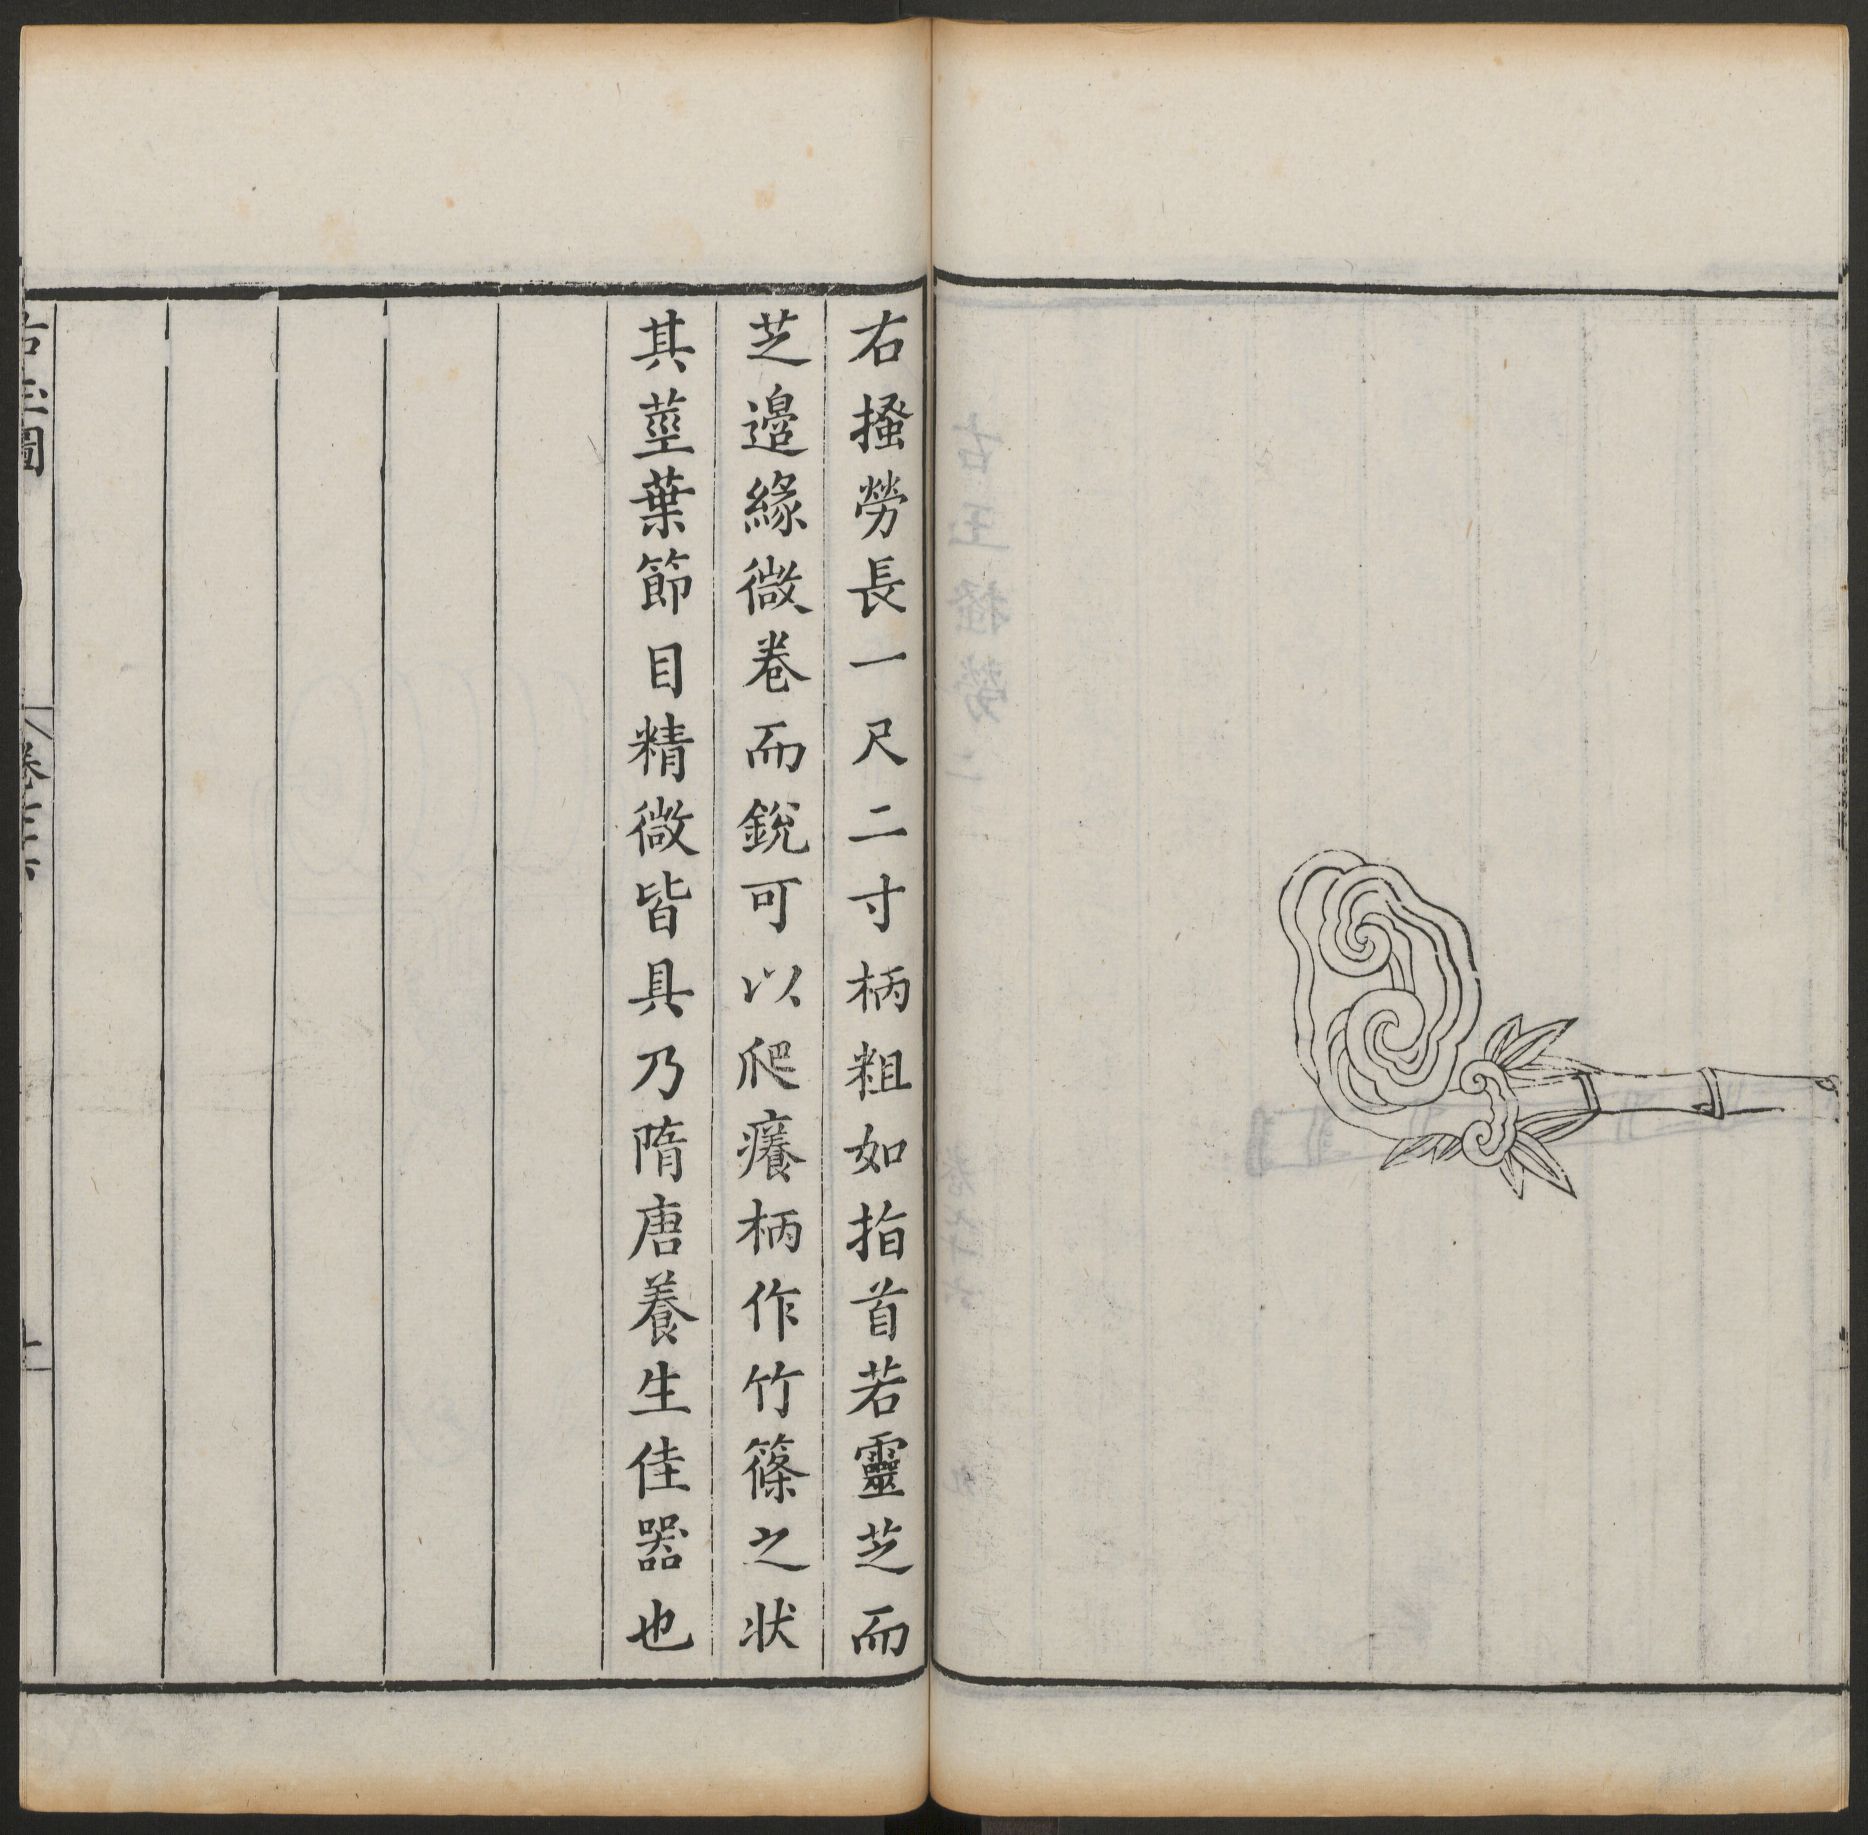 右搔勞長一尺二寸柄粗如指首若靈芝而
芝邊緣微卷而銳可以爬癢柄作竹篠之狀
其莖葉節目精微皆具乃隋唐養生佳器也
古玉圖